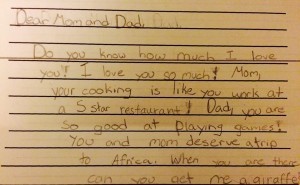 Dear Mom and Dad,
Do you know how much I love
you! I love you so much! Mom,
your cooking is like you work at
a 5 star restaurant! Dad, you are
so good at playing games!
You and mom deserve a trip
to Africa. When you are there
can you get me a giraffe?